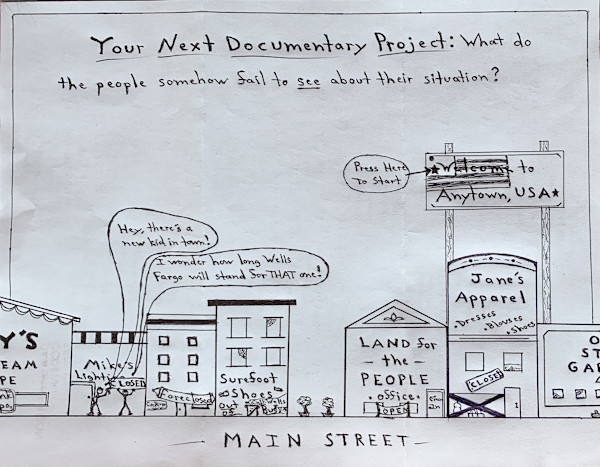 Your Next Documentary Project: What do
the people somehow fail to see about their situation?
Press Here
To Start
★Welcome to
Anytown, USA★
Hey, there's a
new kid in town!
I wonder how long Wells
Fargo will stand for THAT one!
Jane's
Apparel
•Dresses
•Blouses
•Shoes
CLOSED
Y'S
EAM
PE
Mike's
Lighti
CLOSED
Foreclosed
Surefoot
Shoes
Out of
LAND for
- the -
PEOPLE
•office•
OPEN
O
ST
GA
- MAIN STREET -